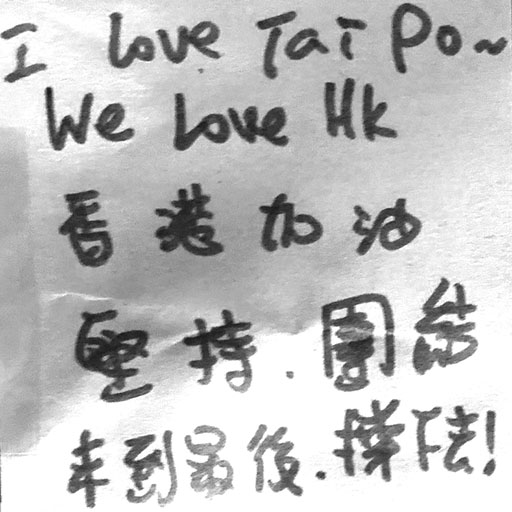 I Love Tai Po~
We Love HK
香港加油
堅持.團結
未到最後.撐下去!